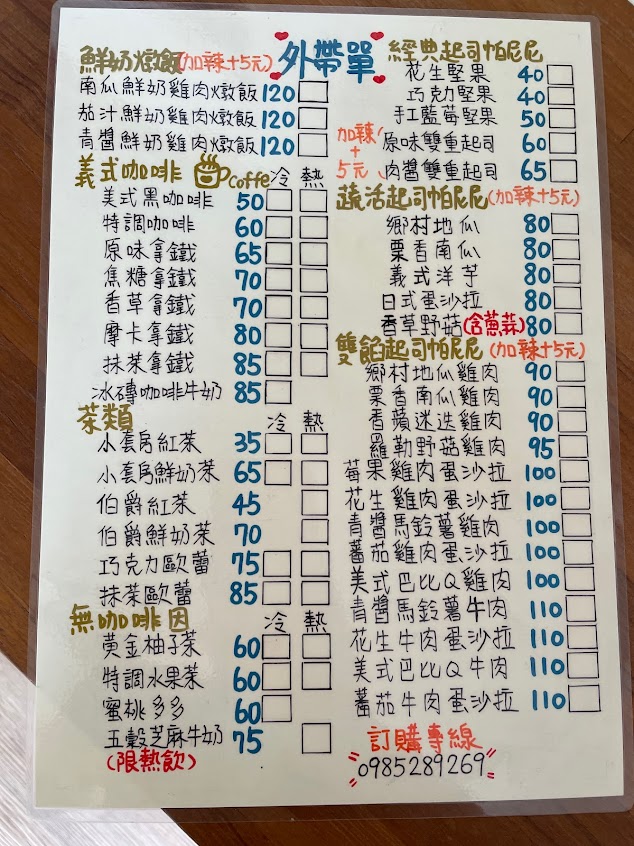 外帶單
鮮奶燉飯(加辣+5元)
南瓜鮮奶雞肉燉飯 120
茄汁鮮奶雞肉燉飯 120
青醬鮮奶雞肉燉飯 120
義式咖啡 Coffe 冷 熱
美式黑咖啡 50
特調咖啡 60
原味拿鐵 65
焦糖拿鐵 70
香草拿鐵 70
摩卡拿鐵 80
抹茶拿鐵 85
冰磚咖啡牛奶 85
茶類 冷 熱
小套房紅茶 35
小套房鮮奶茶 65
伯爵紅茶 45
伯爵鮮奶茶 70
巧克力歐蕾 75
抹茶歐蕾 85
無咖啡因 冷 熱
黃金柚子茶 60
特調水果茶 60
蜜桃多多 60
五穀芝麻牛奶 75
(限熱飲)
經典起司帕尼尼
花生堅果 40
巧克力堅果 40
手工藍莓堅果 50
加辣+5元
原味雙重起司 60
肉醬雙重起司 65
蔬活起司帕尼尼(加辣+5元)
鄉村地瓜 80
栗香南瓜 80
義式洋芋 80
日式蛋沙拉 80
香草野菇(含蔥蒜) 80
雙餡起司帕尼尼(加辣+5元)
鄉村地瓜雞肉 90
栗香南瓜雞肉 90
香蘋迷迭雞肉 90
羅勒野菇雞肉 95
莓果雞肉蛋沙拉 100
花生雞肉蛋沙拉 100
青醬馬鈴薯雞肉 100
蕃茄雞肉蛋沙拉 100
美式巴比Q雞肉 100
青醬馬鈴薯牛肉 110
花生牛肉蛋沙拉 110
美式巴比Q牛肉 110
蕃茄牛肉蛋沙拉 110
訂購專線
0985289269